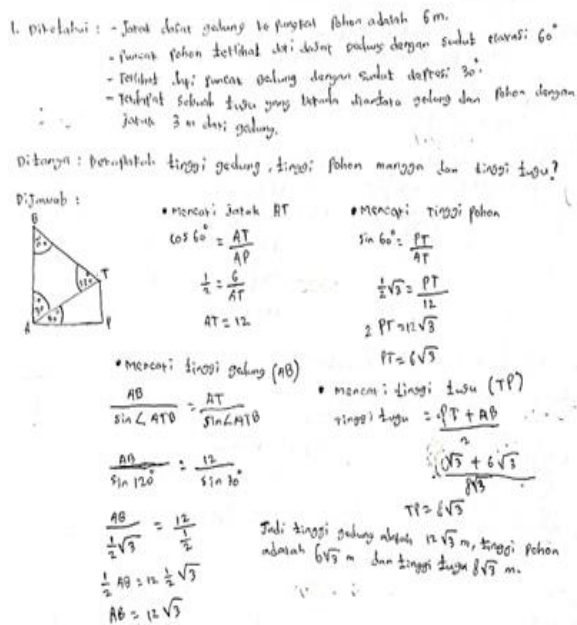 1. Diketahui : - Jarak dasar gedung ke pangkal pohon adalah 6 m.
- Puncak pohon terlihat dari dasar gedung dengan sudut elevasi 60°
- Terlihat dari puncak gedung dengan sudut depresi 30°.
- Terdapat sebuah tugu yang berada diantara gedung dan pohon dengan
jarak 3 m dari gedung.
Ditanya : berapakah tinggi gedung, tinggi pohon mangga dan tinggi tugu?
Dijawab :
B
T
A
P
• Mencari Jarak AT
cos 60° = AT/AP
1/2 = 6/AT
AT = 12
• Mencari Tinggi pohon
sin 60° = PT/AT
1/2 √3 = PT/12
2 PT = 12√3
PT = 6√3
• Mencari tinggi gedung (AB)
AB/sin∠ATB = AT/sin∠ATB
AB/sin 120° = 12/sin 30°
AB/(1/2 √3) = 12/(1/2)
1/2 AB = 12 1/2 √3
AB = 12√3
• Mencari tinggi tugu (TP)
Tinggi tugu = PT + AB / 2
√3 + 6√3
8√3
Jadi tinggi gedung adalah 12√3 m, tinggi pohon
adalah 6√3 m dan tinggi tugu 8√3 m.